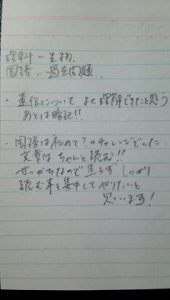 理科 ー 生物
国語 ー 過去問題
・遺伝について、よく理解できたと思う
あとは暗記!!
・国語は初めて?のチャレンジでした
文章はちゃんと読む!!
せっかちなので焦らずしっかり
読む事を集中してやりたいと
思います!